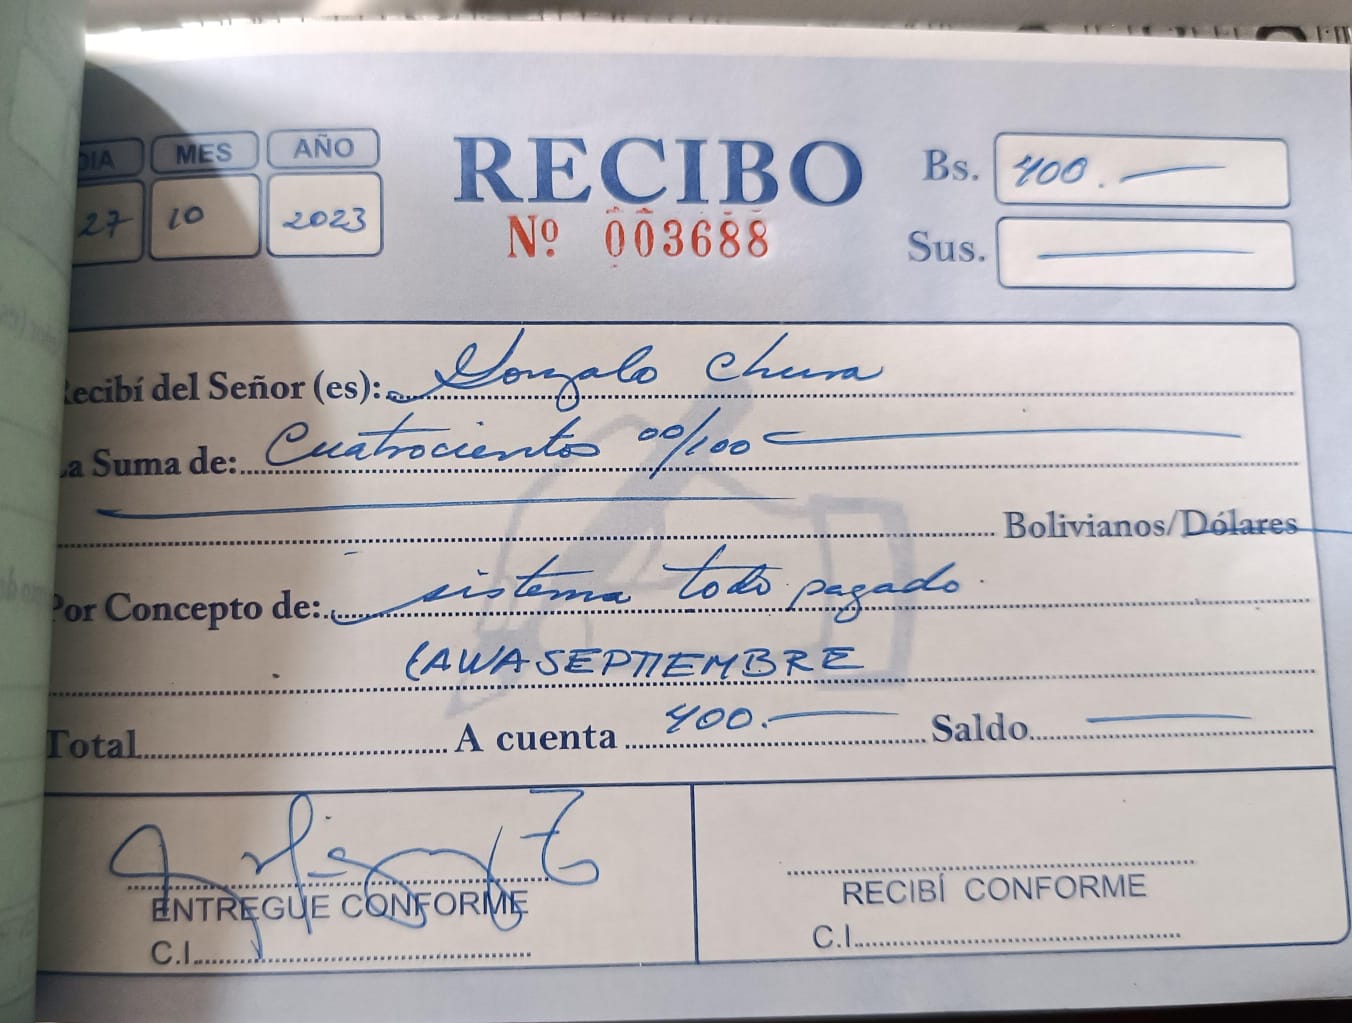 DIA MES AÑO
27 10 2023
RECIBO
Nº 003688
Bs. 400.—
Sus. —
Recibí del Señor (es): Gonzalo Chura
La Suma de: Cuatrocientos 00/100
Bolivianos/Dólares
Por Concepto de: sistema todo pagado
(AWASEPTIEMBRE
Total A cuenta 400.— Saldo —
ENTREGUE CONFORME
C.I.
RECIBÍ CONFORME
C.I.